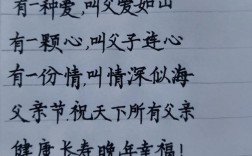 有一种爱,叫父爱如山
有一颗心,叫父子连心
有一份情,叫情深似海
父亲节,祝天下所有父亲
健康长寿晚年幸福!